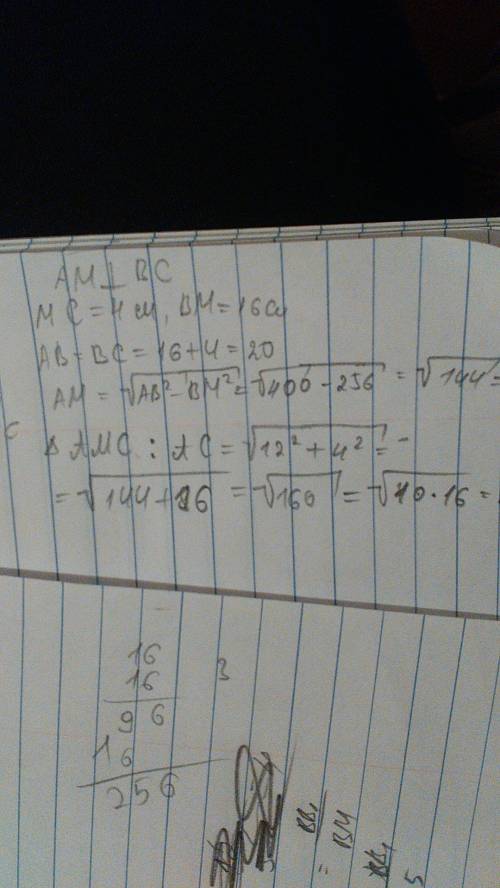 AM ⊥ BC
MC = 4 см, BM = 16 см
AB = BC = 16 + 4 = 20
AM = √(AB² - BM²) = √(400 - 256) = √144 =
Δ AMC : AC = √(12² + 4²) =
= √(144 + 16) = √160 = √(10 · 16) =
16
16
96
16
256
3
BB₁
= BM
BB₁
5